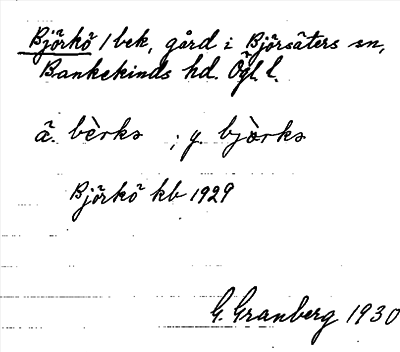 Björkö /bek, gård i Björsäters sn,
Bankekinds hd. Ögl. l.
ä. bèrks ; y. bjòrks
Björkö kb 1929
G. Granberg 1930